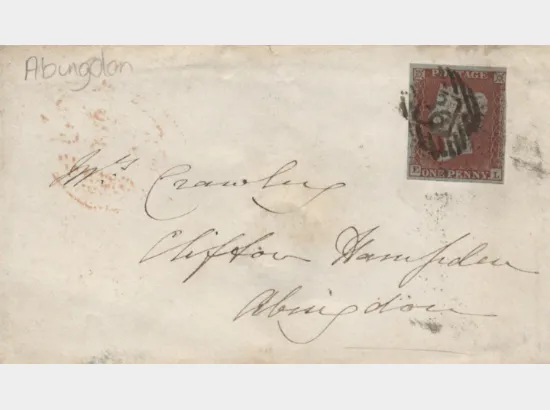 Abingdon
POSTAGE
ONE PENNY
L
Mrs Crawley
Clifton Hampden
Abingdon